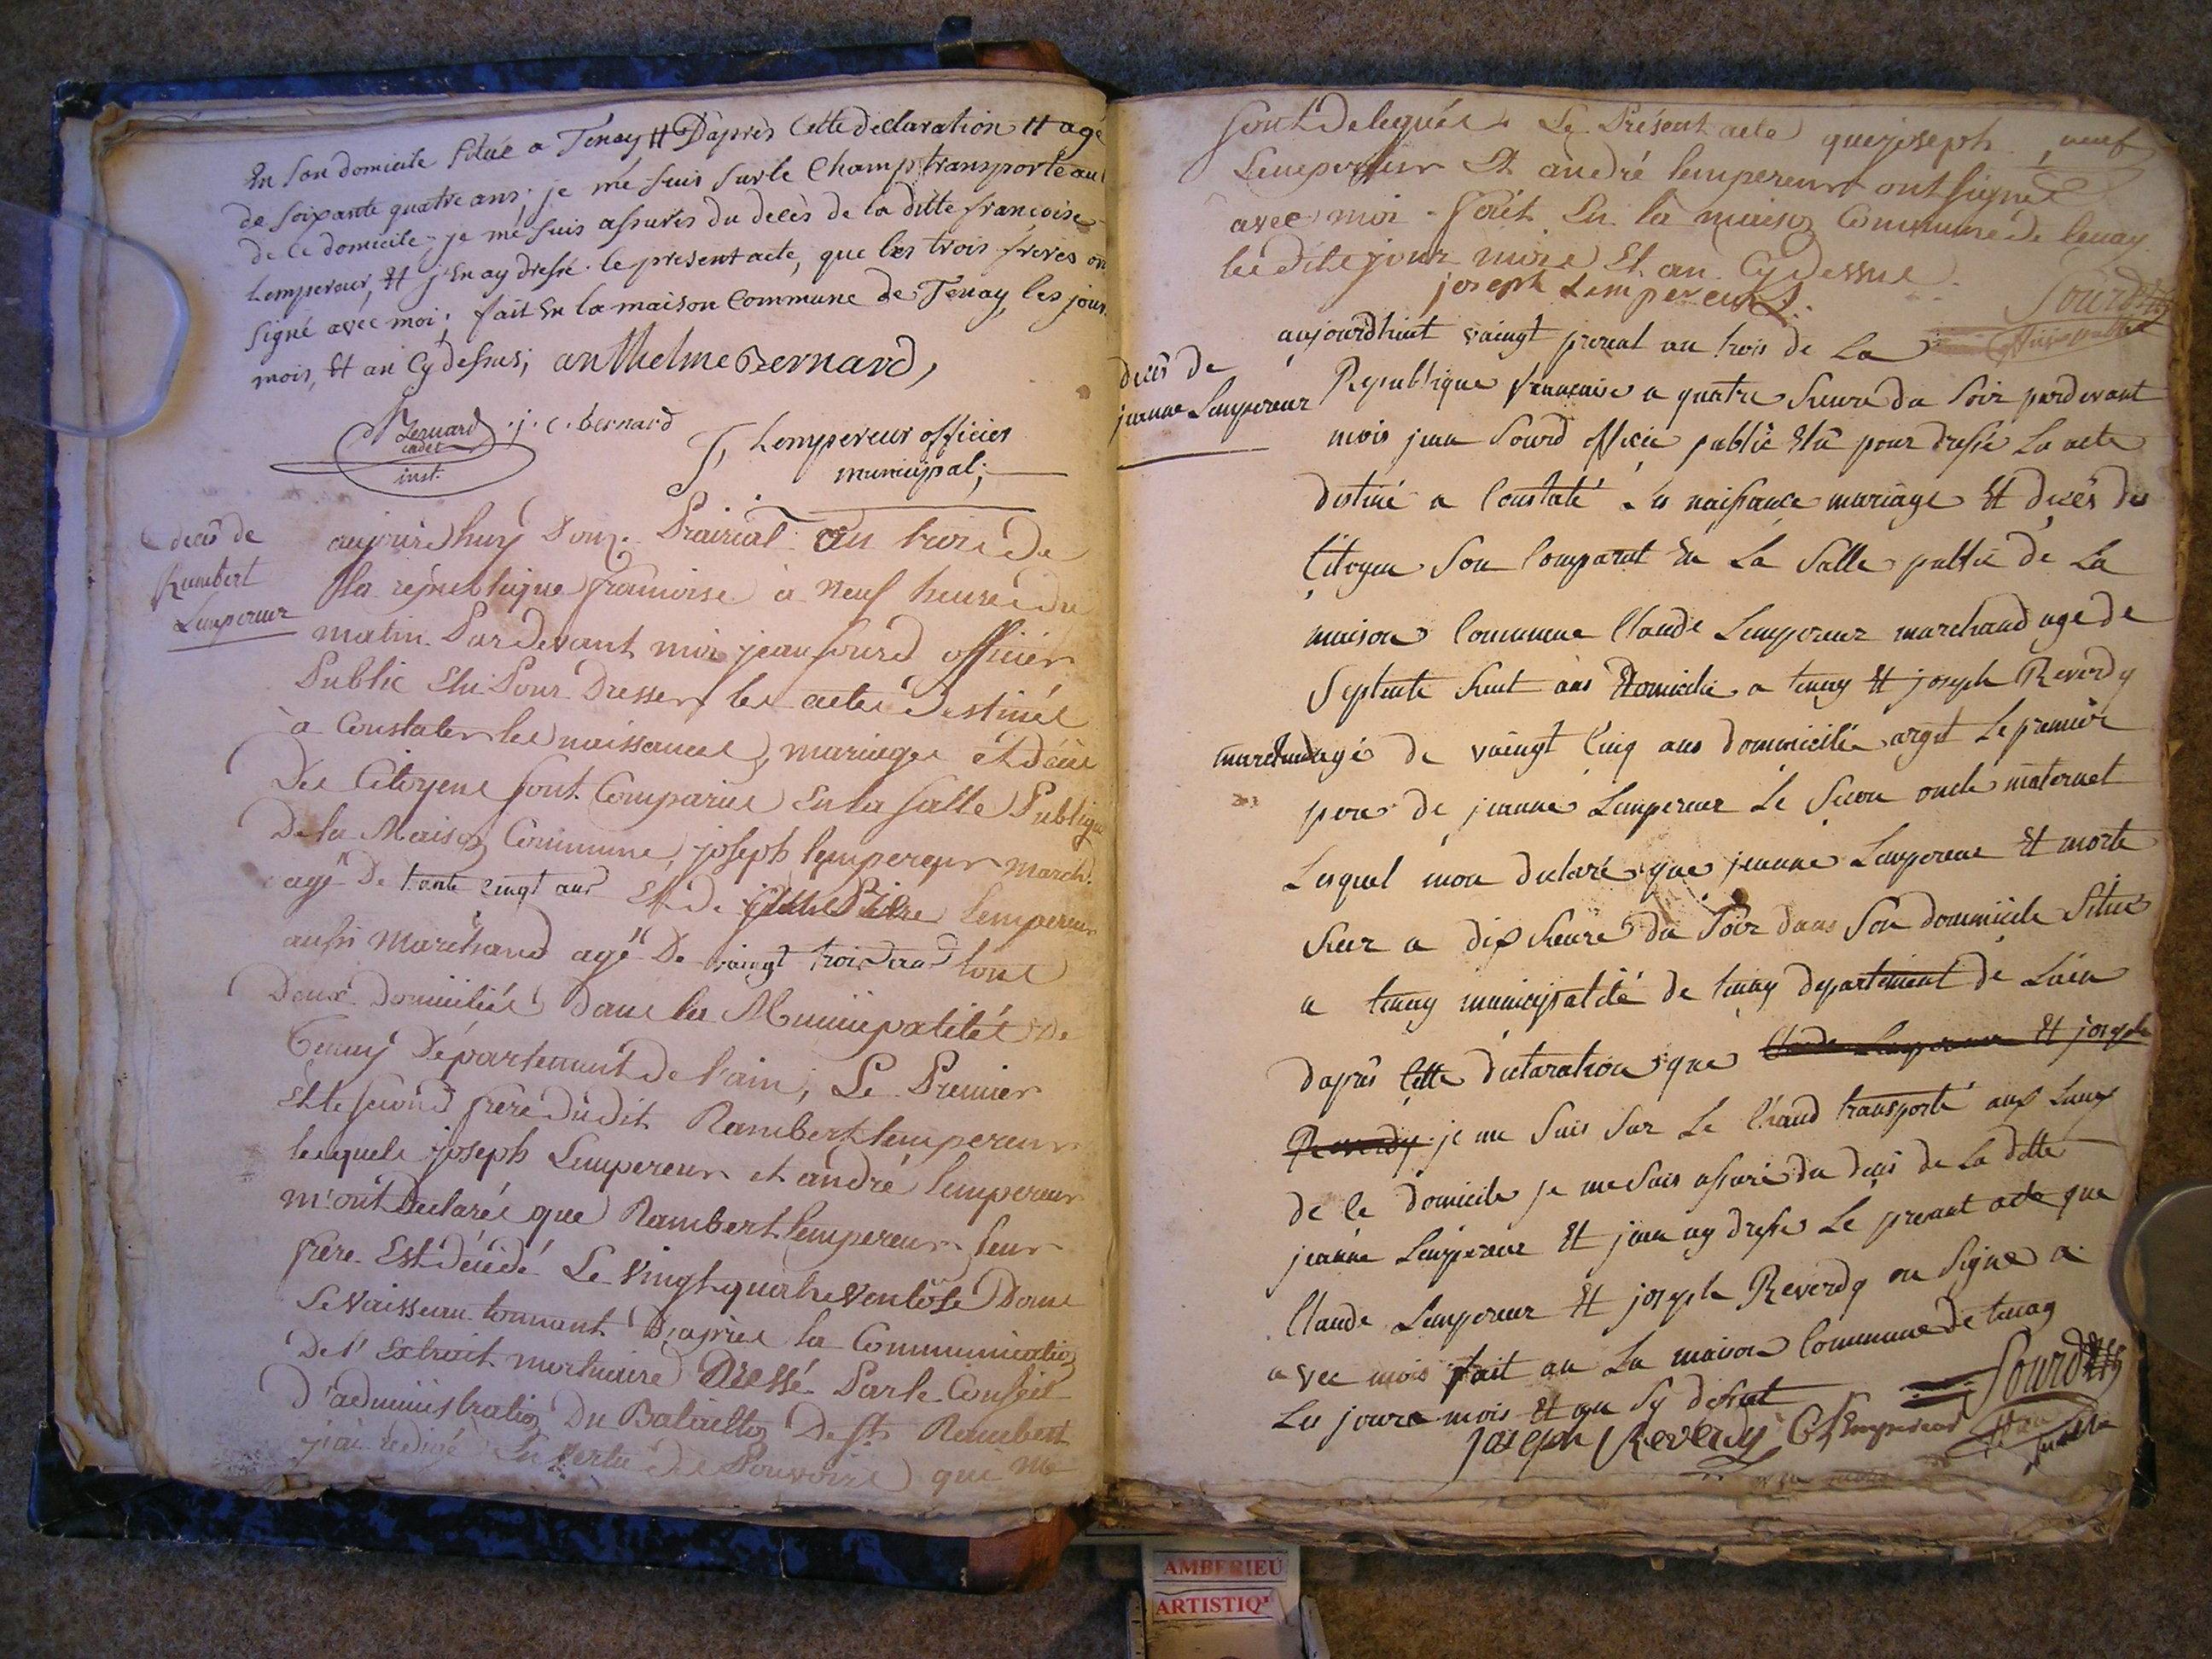 En son domicile situé a Tenay et D'après Cette déclaration et agé
de soixante quatre ans; je mé suis sur le Champ transporté au
de ce domicile; je mé suis assurés du decès de la ditte francoise
Lempereur, et j'En ay dressé le présent acte, que les trois freres on
signé avec moi; fait En la maison Commune de Tenay, les jour
mois, et an Cy dessus; anthelme Bernard,
Bernard cadet inst. j. c. bernard
J, Lempereur officier
municipal;
decès de
Rambert
Lempereur
aujourdhuy Douze Prairial an trois de
la republique francoise à neuf heures du
matin Pardevant moi jean Sourd officier
Public Elu Pour Dresser les actes Destinés
à Constater les naissances, mariages et décès
Des Citoyens sont Comparus En la salle Publique
De la Maison Commune, joseph lempereur march.
agé De tante cingt ans Et de lempereur
aussi Marchand agé De vaingt trois ans tous
Deux Domiciliés dans les Municipalités De
Tenay Département de l'ain, Le Premier
Et le second frere dudit Rambert lempereur
lesquels joseph Lempereur et andré lempereur
m'ont Declarés que Rambert lempereur leur
frere Est décédé Le Vingt quatre Ventôse Dans
Le Vaisseau tonnant D'après la Communication
De l'Extrait mortuaire Dressé Par le Conseil
d'administration Du Bataillon De St. Rambert
j'ai redigé En Vertu des Pouvoirs que me
sont Delegués Le Présent acte que joseph
Lempereur Et andré lempereur ont signé
avec moi fait En la maison Commune de tenay
les dits jour mois Et an Cy Dessus
joseph Lempereur
Sourd
decès de
jeanne Lempereur
aujourdhuit vaingt prerial an trois de La
Republique francaise a quatre heure du soir pardevant
mois jean Sourd officie public élû pour dressé La acte
destiné a Constaté les naissance mariage et decès des
Citoyen son Comparut En La Salle public de La
maison Commune Claude Lempereur marchand age de
septente huit ans domicilie a tenay et joseph Reverdy
marchand agé de vaingt cinq ans dommicilié argit Le premier
pere de jeanne Lempereur Le Secon oncle maternel
Lesquel mon declaré que jeanne Lempereur Et morte
hier a dix heure du Soir dans Son dommicile Situe
a tenay municipalité de tenay departement de Lain
daprès Cette declaration que Claude Lempereur Et joseph
Reverdy je me Suis Sur Le Chand transporté aux Lieux
de Ce Domicile je me Suis assuré du decès de La ditte
jeanne Lempereur Et jean ay dressé Le presant acte que
Claude Lempereur Et joseph Reverdy on Signe a
avec mois fait an La maison Commune de tenay
Les joura mois Et an Sy desut
Sourd
joseph Reverdy C Lempereur
AMBERIEU
ARTISTIQ